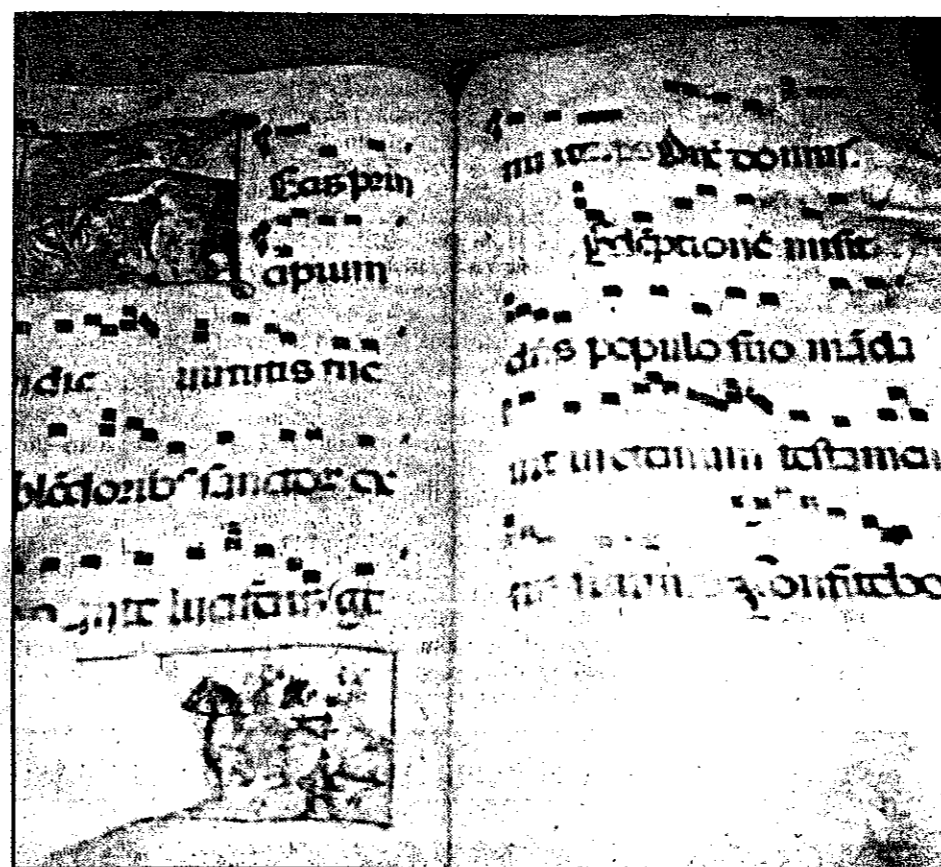 prin
cipium
die uirtutis tue
splēdorib' sanctor ex
ante luciferū ge
nui te. Dix̄ domin'.
Redēptionē misit
dn̄s populo suo māda
uit in eternum testamen
Confitebo